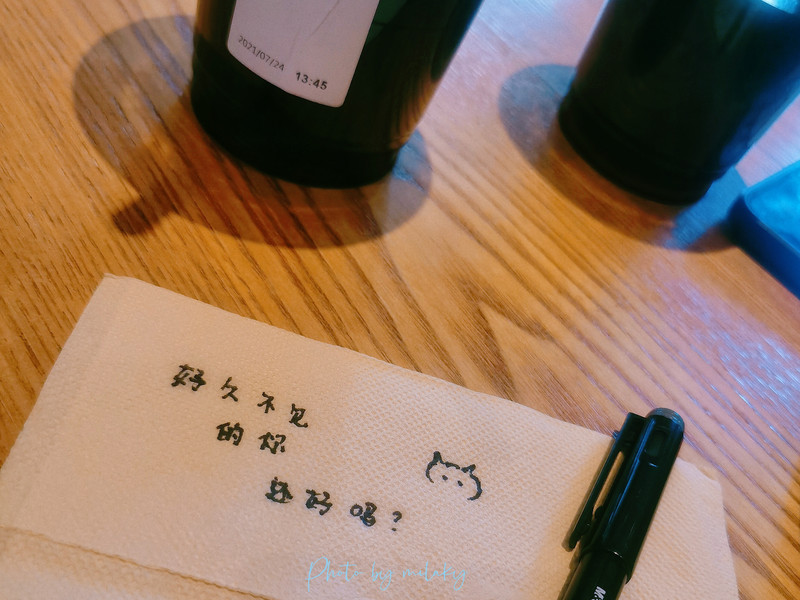 2021/07/24 13:45
好久不见
的你
还好吗?
Phot- by milaky
M